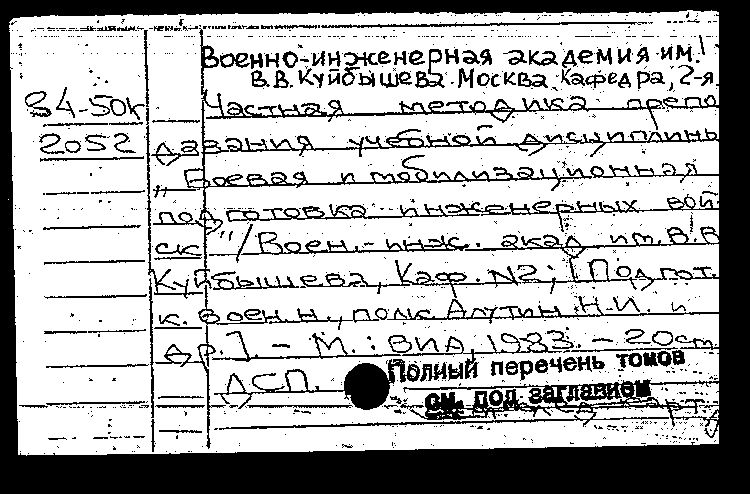 Военно-инженерная академия им.
В.В. Куйбышева. Москва. Кафедра, 2-я.
84-50к Частная методика препо
2052 давания учебной дисциплины
"Боевая и мобилизационная
подготовка инженерных вой
ск"/Воен.-инж. акад им. В.В
Куйбышева, Каф. N2; [Подгот.
к. воен. н., полк Алутин Н.И. и
др.]. - М.: ВИА, 1983. - 20см
ДСП.
Полный перечень томов
см. под заглавием